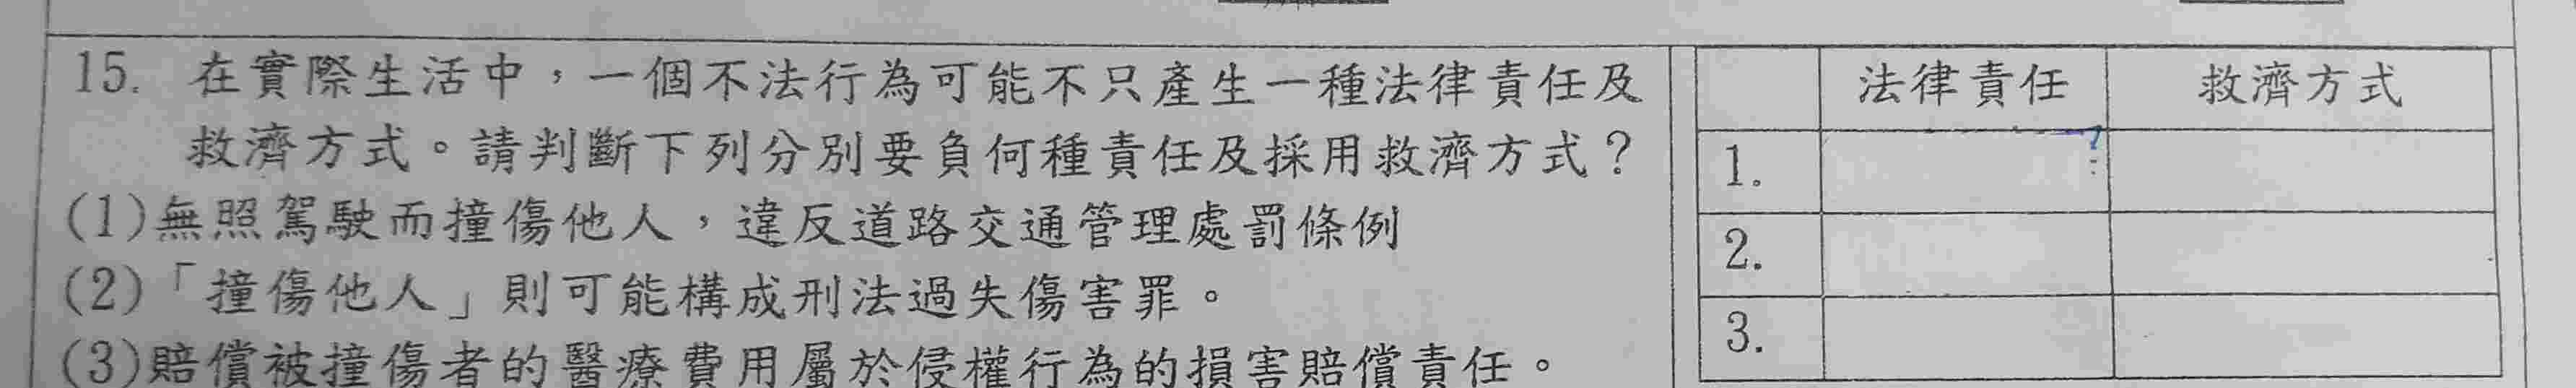 15. 在實際生活中，一個不法行為可能不只產生一種法律責任及
救濟方式。請判斷下列分別要負何種責任及採用救濟方式？
(1)無照駕駛而撞傷他人，違反道路交通管理處罰條例
(2)「撞傷他人」則可能構成刑法過失傷害罪。
(3)賠償被撞傷者的醫療費用屬於侵權行為的損害賠償責任。
法律責任 救濟方式
1. ?
2.
3.